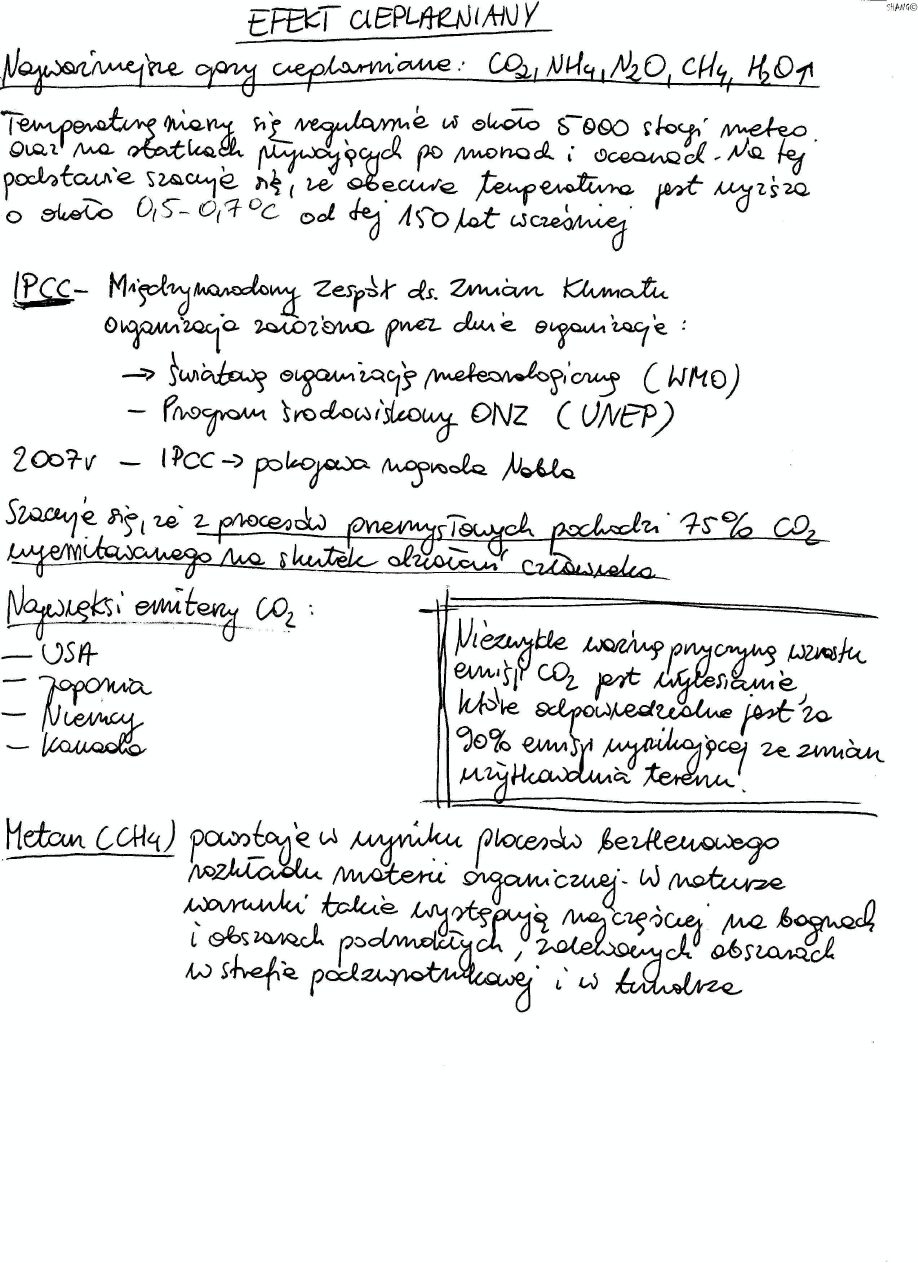 SHANG©
EFEKT CIEPLARNIANY
Najważniejsze gazy cieplarniane: CO2, NH4, N2O, CH4, H2O↑
Temperaturę mierzy się regularnie w około 5000 stacji meteo.
oraz na statkach pływających po morzach i oceanach. Na tej
podstawie szacuje się, że obecnie temperatura jest wyższa
o około 0,5-0,7°C od tej 150 lat wcześniej
IPCC - Międzynarodowy Zespół ds. Zmian Klimatu
organizacja założona przez dwie organizacje:
→ Światową organizację meteorologiczną (WMO)
- Program środowiskowy ONZ (UNEP)
2007r - IPCC → pokojowa nagroda Nobla
Szacuje się, że z procesów przemysłowych pochodzi 75% CO2
wyemitowanego na skutek działań człowieka
Najwięksi emiterzy CO2:
- USA
- Japonia
- Niemcy
- Kanada
Niezwykle ważną przyczyną wzrostu
emisji CO2 jest wylesianie,
które odpowiedzialne jest za
90% emisji wynikającej ze zmian
użytkowania terenu!
Metan (CH4) powstaje w wyniku procesów beztlenowego
rozkładu materii organicznej. W naturze
warunki takie występują najczęściej na bagnach
i obszarach podmokłych, zalewanych obszarach
w strefie podzwrotnikowej i w tundrze